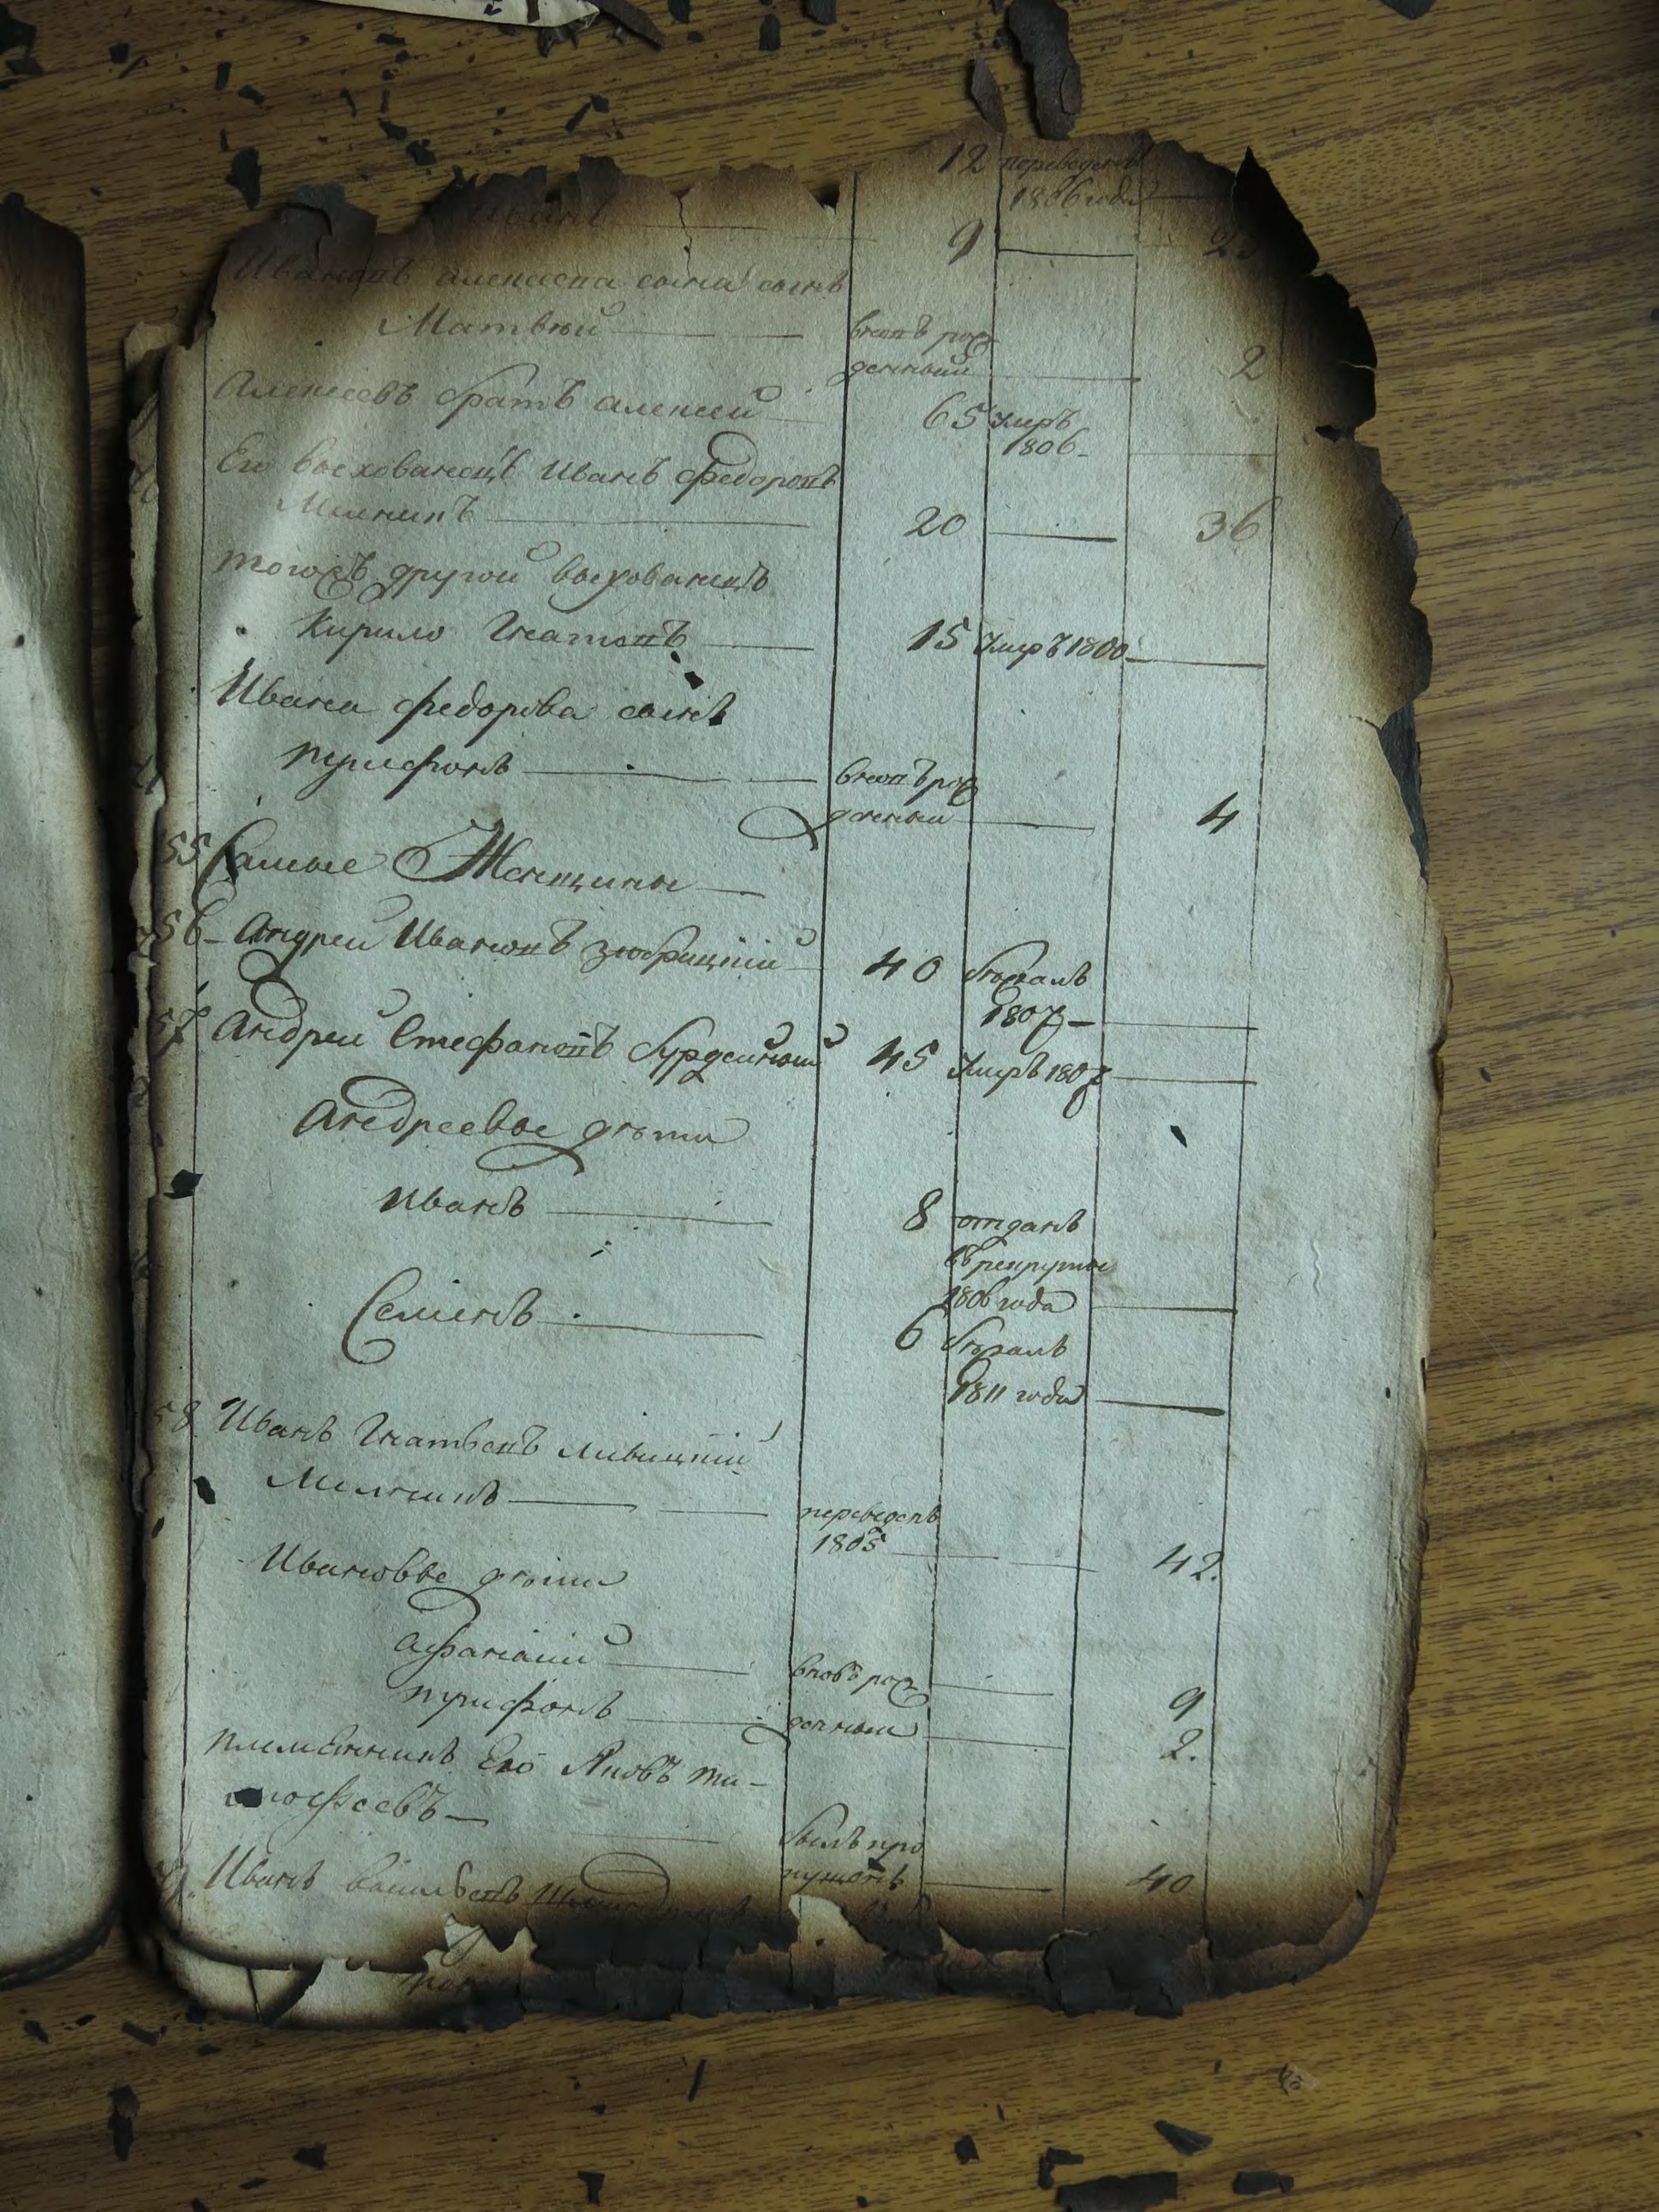 12 переведенъ
1806 года
Иванъ 9
Ивановъ алексѣя сына сынъ
Матвѣй вновь рож
денный 2
Алексеевъ братъ алексей 65 Умръ
1806
Его восхованецъ Иванъ Федоровъ
Милникъ 20 36
тогожъ другой восхованецъ
Кирило Игнатовъ 15 Умръ 1800
Ивана Федорова сынъ
Трифонъ вновь рож
денный 4
55 Самые Женщины
56 Андрей Ивановъ Зюбрицкій 40 бѣжалъ
1807
57 Андрей Стефановъ бурдейный 45 Умръ 1807
Андреевые дѣти
Иванъ 8 отданъ
въ рекруты
1806 года
Семенъ 6 бѣжалъ
1811 года
58 Иванъ Игнатьевъ Ливицкій
Милникъ переведенъ
1805 42.
Ивановые дѣти
афанасій вновь рож 9
Трифонъ денный 2.
племенникъ Его Яковъ ти-
мофеевъ
былъ про
пущенъ 40
Иванъ васильевъ